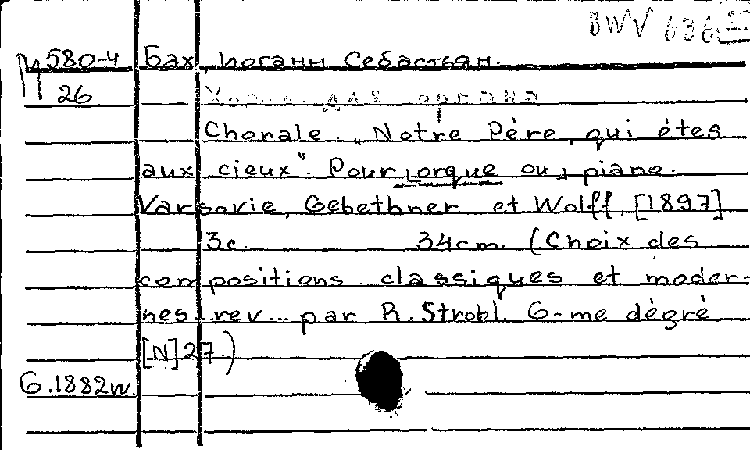 BWV 636
М 580-4 Бах, Иоганн Себастьян.
26 Хорал для органа
Chorale „Notre Père, qui êtes
aux cieux". Pour orgue ou piano.
Varsovie, Gebethner et Wolff, [1897]
3c. 34cm. (Choix des
compositions classiques et moder-
nes rev... par R. Strobl. 6-me dégré
[N]27)
G.1882w.